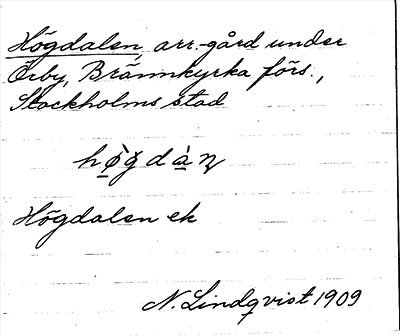 Högdalen, arr.-gård under
Örby, Brännkyrka förs.,
Stockholms stad
Högdalen ek
N. Lindqvist 1909